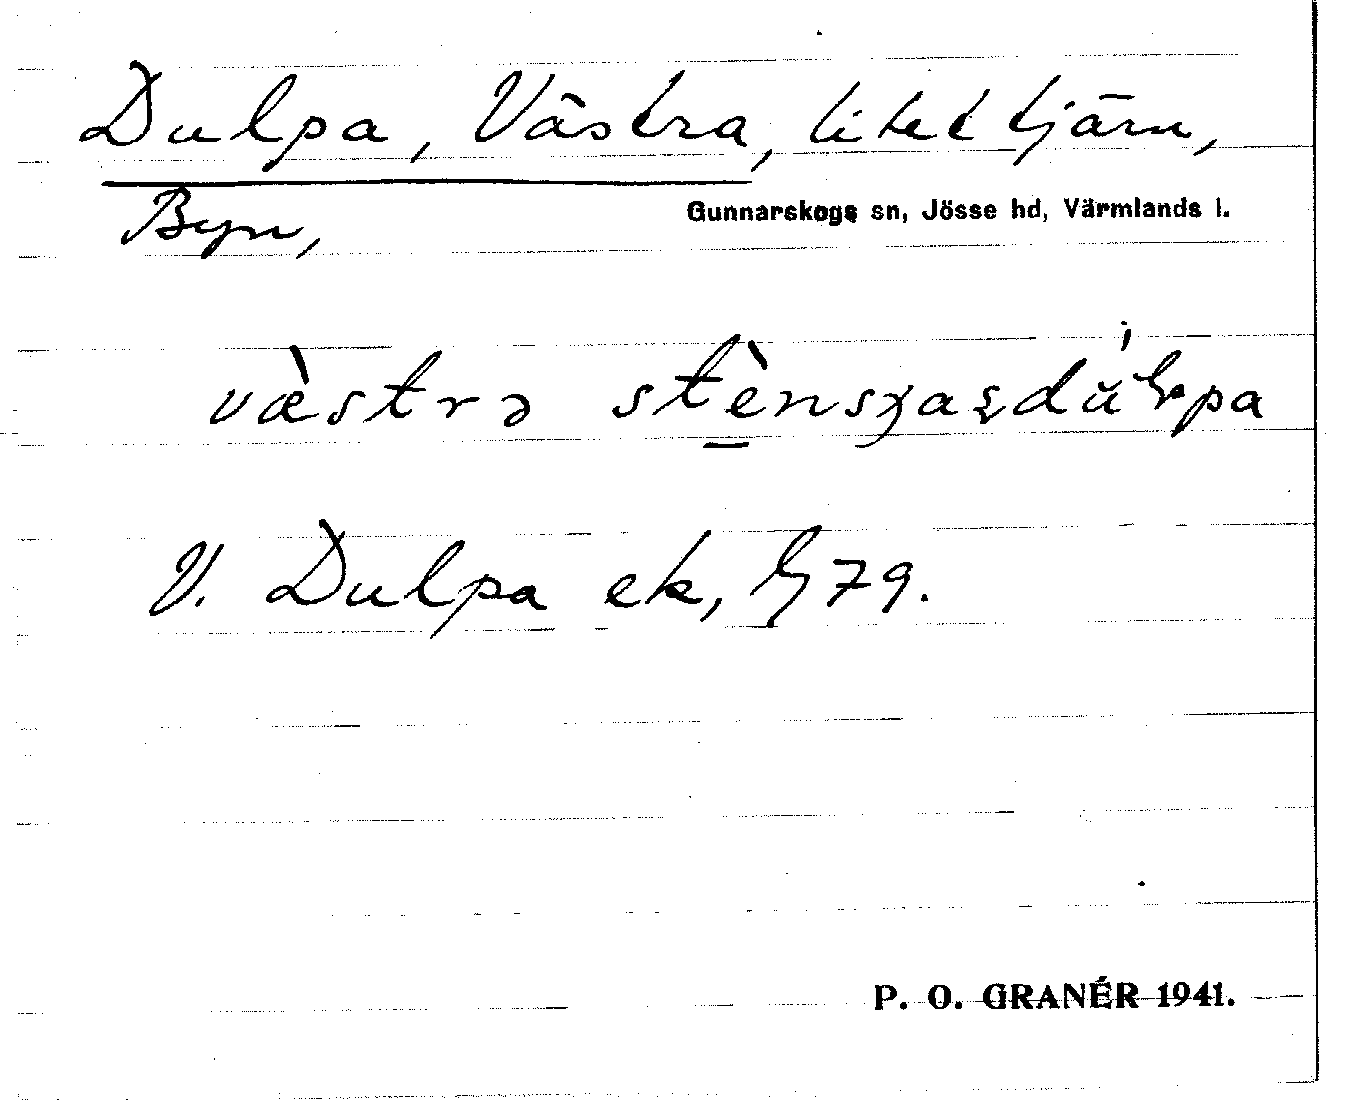 Dulpa, Västra, litet tjärn,
Byn, Gunnarskogs sn, Jösse hd, Värmlands l.
væ̀strə
V. Dulpa ek, 79.
P. O. GRANÉR 1941.